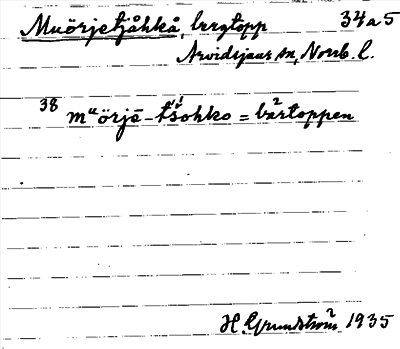 Muörjetjåhkå, bergtopp 34a5
Arvidsjaur sn, Norrb. l.
38 mᵘörjē-tš́ohko = bärtoppen
H. Grundström 1935